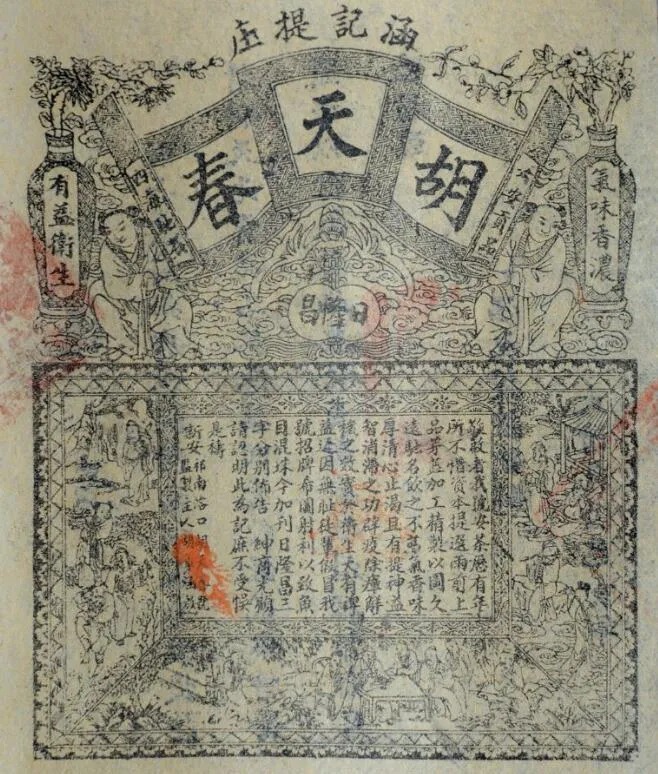 涵記提庄
胡天春
氣味香濃
六安貢品
有益衛生
日隆昌
敬啟者我號安茶歷有年
所不惜資本提選雨前上
品芽蕊加工精製以圖久
遠馳名飲之不氣香味
厚清心止渴且有提神益
智消滯之功辟疫除瘴解
穢之效實於衛生大有裨
益近因無恥徒輩假冒我
號招牌希圖射利以致魚
目混珠今加刊日隆昌三
字分別佈告 紳商光顧
請認明此為記庶不受悞
是禱
新安
祁南溶口胡
監製主人胡